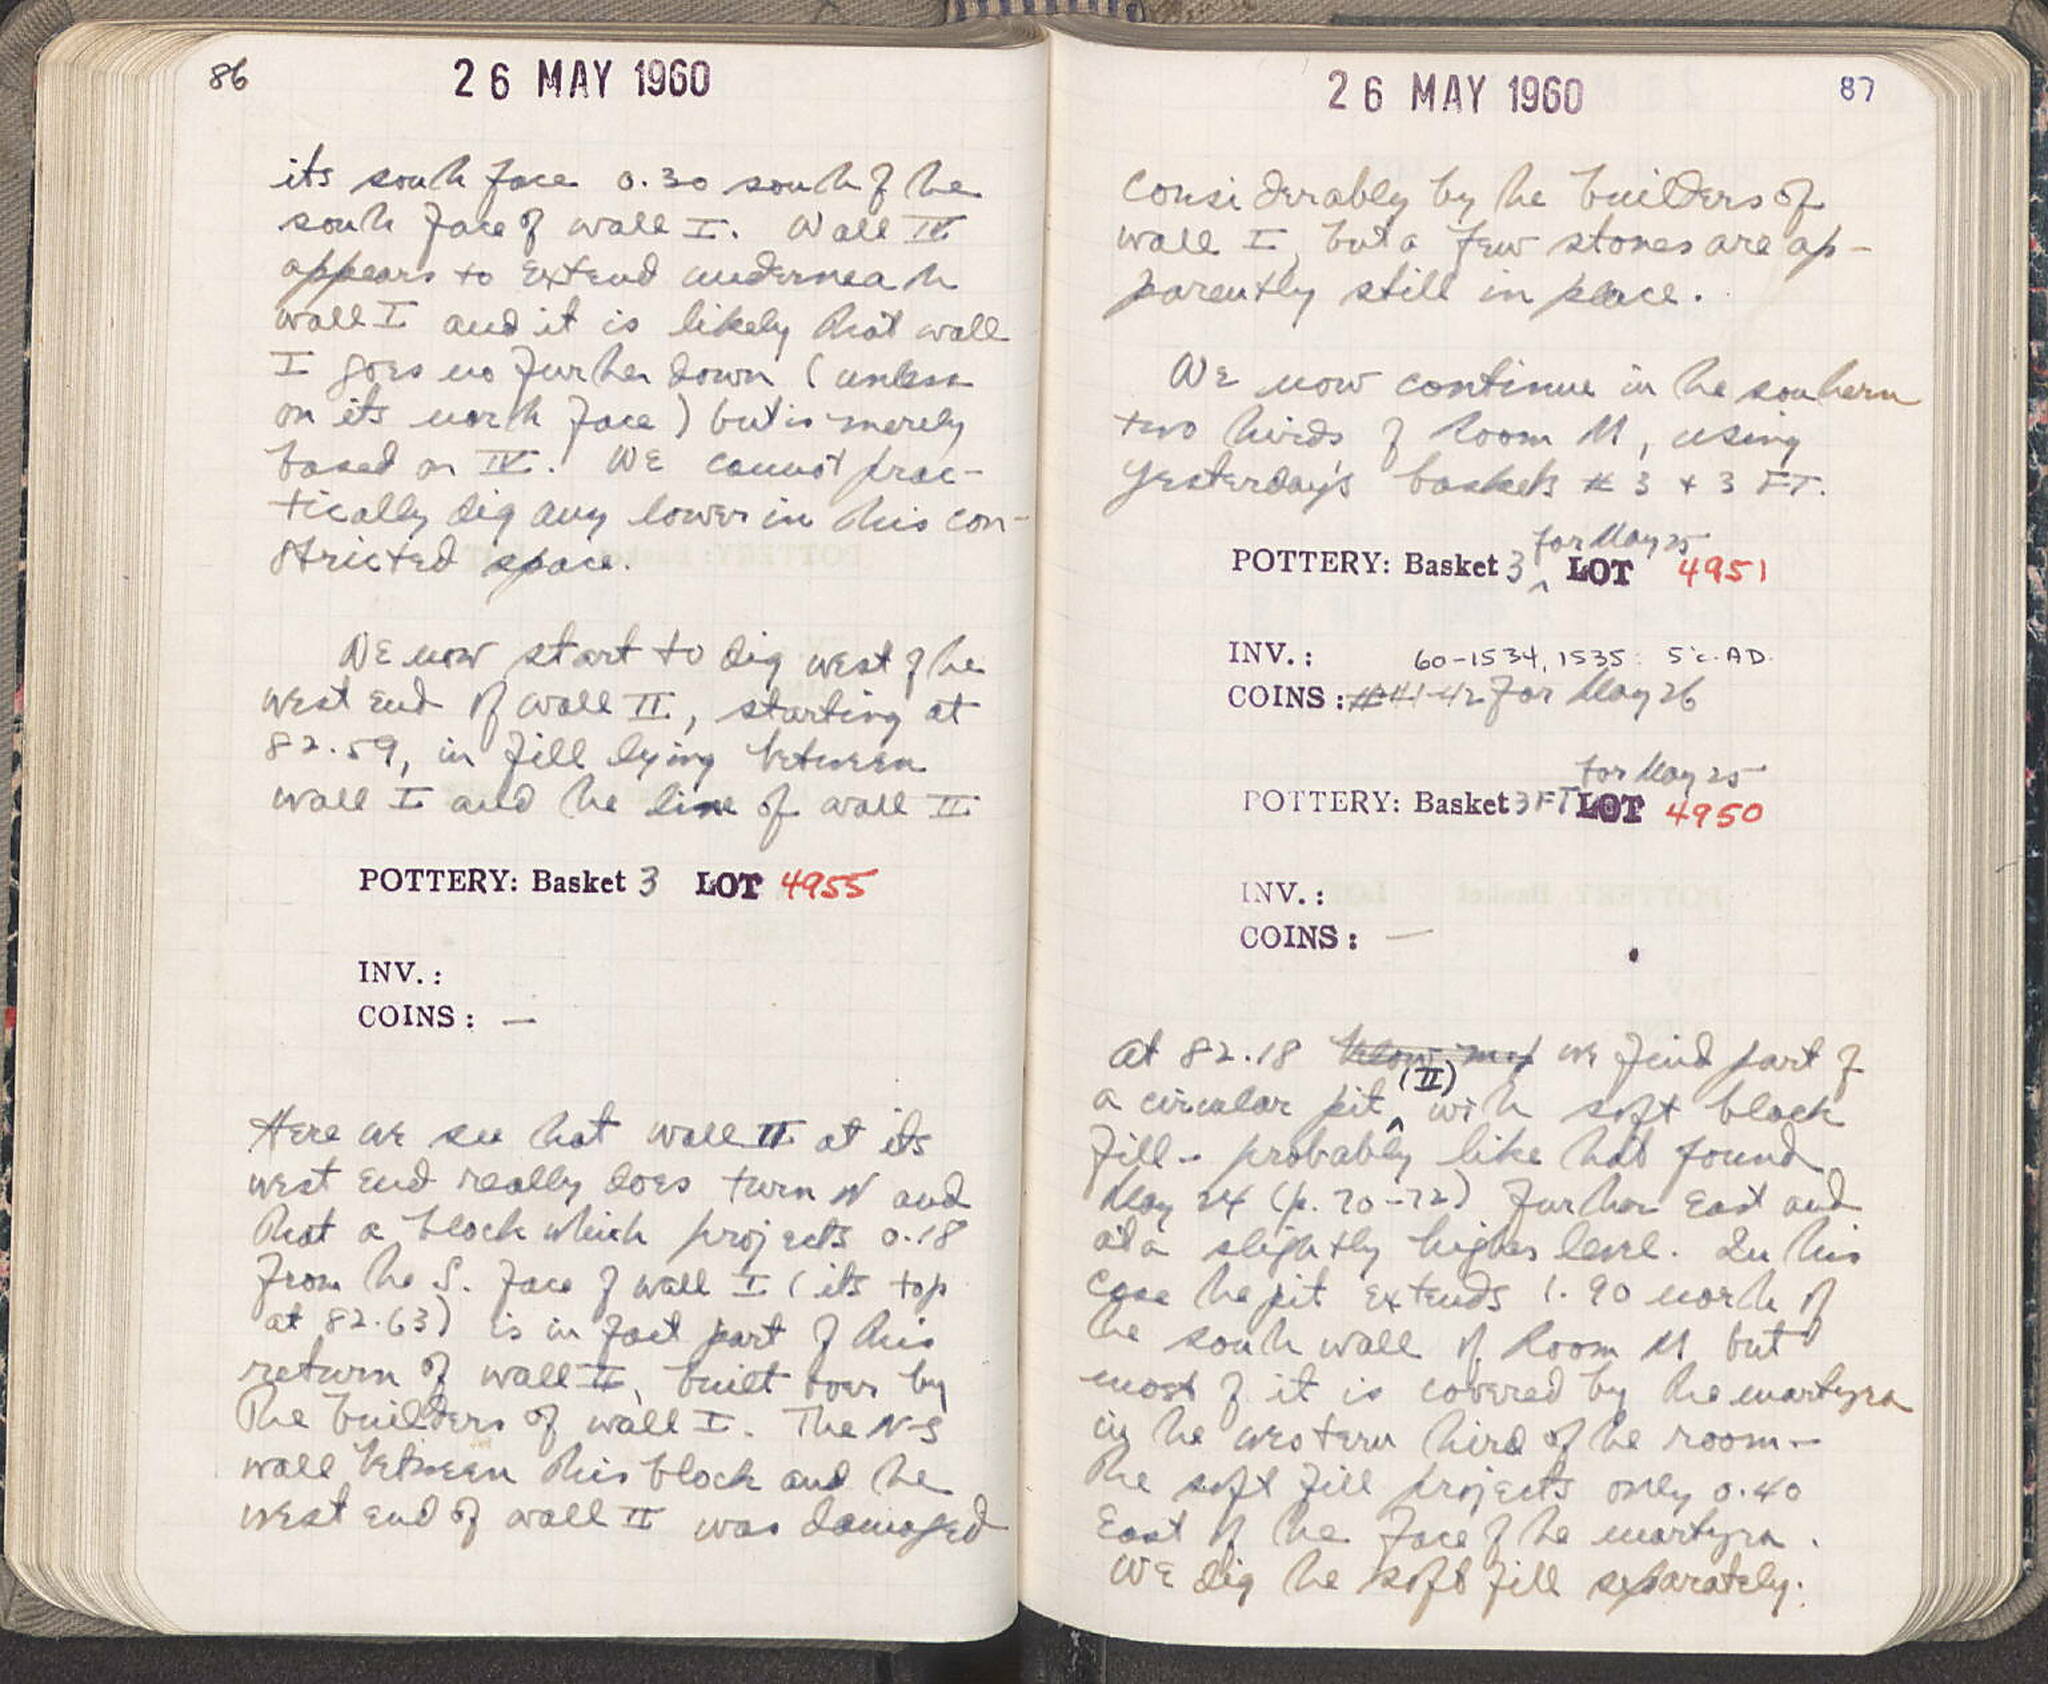 86
26 MAY 1960
its south face 0.30 south of the
south face of wall I. Wall IV
appears to extend underneath
wall I and it is likely that wall
I goes no further down (unless
on its north face) but is merely
based on IV. We cannot prac-
tically dig any lower in this con-
stricted space.
We now start to dig west of the
west end of wall II, starting at
82.59, in fill lying between
wall I and the line of wall II
POTTERY: Basket 3 LOT 4955
INV.:
COINS: —
Here we see that wall II at its
west end really does turn N and
that a block which projects 0.18
from the S. face of wall I (its top
at 82.63) is in fact part of this
return of wall II, built over by
the builders of wall I. The N-S
wall between this block and the
west end of wall II was damaged
26 MAY 1960
87
considerably by the builders of
wall I, but a few stones are ap-
parently still in place.
We now continue in the southern
two thirds of Room M, using
yesterday's baskets # 3 + 3 FT.
for May 25
POTTERY: Basket 3 ^ LOT 4951
INV.: 60-1534, 1535: 5 c. A.D.
COINS: #41-42 for May 26
for May 25
POTTERY: Basket 3FT LOT 4950
INV.:
COINS: —
At 82.18 we find part of
a circular pit ^ (II) with soft black
fill - probably like that found
May 24 (p. 70-72) further East and
at a slightly higher level. In this
case the pit extends 1.90 north of
the south wall of Room M but
most of it is covered by the martyra
in the western third of the room -
the soft fill projects only 0.40
East of the face of the martyra.
We dig the soft fill separately.